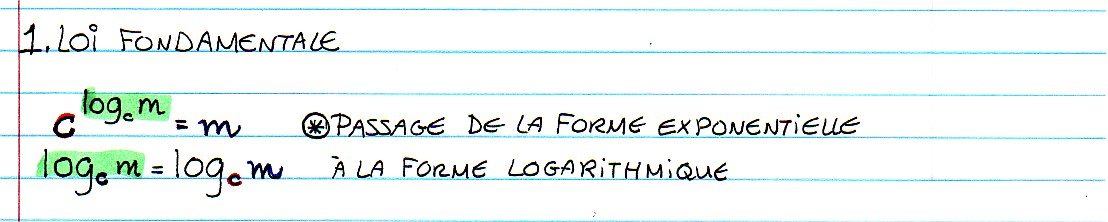 1. LOI FONDAMENTALE
c^(log_c m) = m ⊛ PASSAGE DE LA FORME EXPONENTIELLE
log_c m = log_c m À LA FORME LOGARITHMIQUE